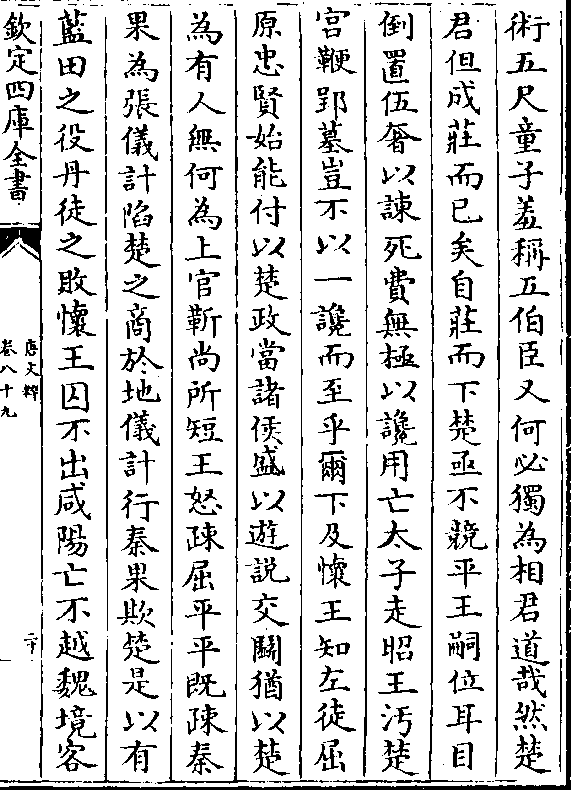 術五尺童子羞稱五伯臣又何必獨為相君道哉然楚
君但成莊而已矣自莊而下楚亟不競平王嗣位耳目
倒置伍奢以諫死費無極以讒用亡太子走昭王汚楚
宫鞭郢墓豈不以一讒而至乎爾下及懷王知左徒屈
原忠賢始能付以楚政當諸侯盛以遊説交鬭猶以楚
為有人無何為上官靳尚所短王怒疎屈平平既疎秦
果為張儀計陷楚之商於地儀計行秦果欺楚是以有
藍田之役丹徒之敗懷王囚不出咸陽亡不越魏境客
欽定四庫全書
唐文粹
卷八十九
二十